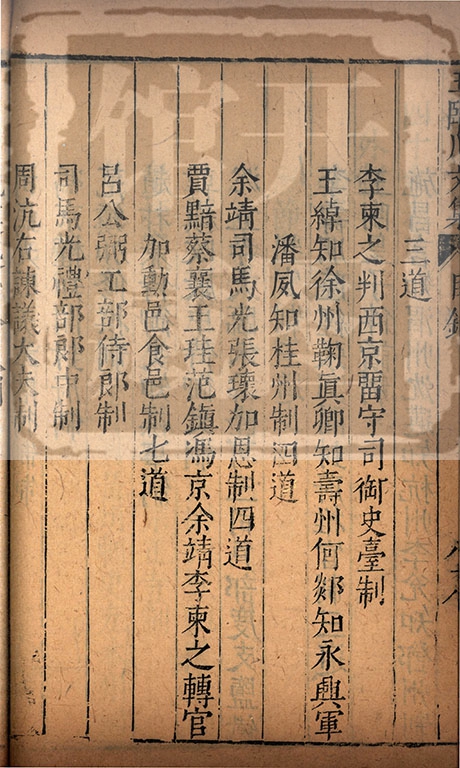 王臨川文集 目錄
三道
李柬之判西京畱守司御史臺制
王綽知徐州鞠眞卿知壽州何郯知永興軍
潘夙知桂州制四道
余靖司馬光張瓌加恩制四道
賈黯蔡襄王珪范鎭馮京余靖李柬之轉官
加勳邑食邑制七道
呂公弼工部侍郎制
司馬光禮部郎中制
周沆右諫議大夫制